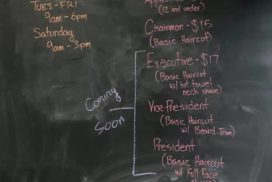 TUES-FRI
9am-6pm
Saturday
9am-3pm
(12 and under)
Chairman - $15
(Basic Haircut)
Executive - $17
(Basic Haircut
w/ hot towel
neck shave)
Coming
Soon
Vice President
(Basic Haircut
w/ Beard Trim)
President
(Basic Haircut
w/ Full face